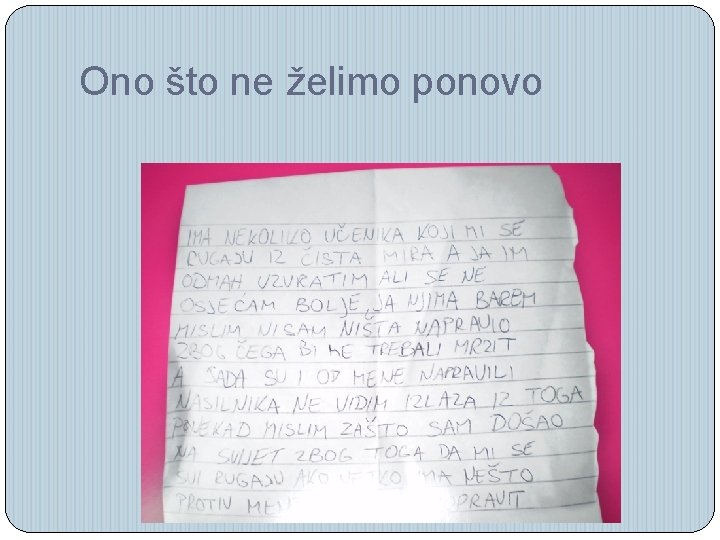 Ono što ne želimo ponovo
IMA NEKOLIKO UČENIKA KOJI MI SE
RUGAJU IZ ČISTA MIRA A JA IM
ODMAH UZVRATIM ALI SE NE
OSJEĆAM BOLJE, JA NJIMA BAREM
MISLIM NISAM NIŠTA NAPRAVIO
ZBOG ČEGA BI ME TREBALI MRZIT
A SADA SU I OD MENE NAPRAVILI
NASILNIKA NE VIDIM IZLAZA IZ TOGA
PONEKAD MISLIM ZAŠTO SAM DOŠAO
NA SVIJET ZBOG TOGA DA MI SE
SVI RUGAJU AKO NETKO IMA NEŠTO
PROTIV